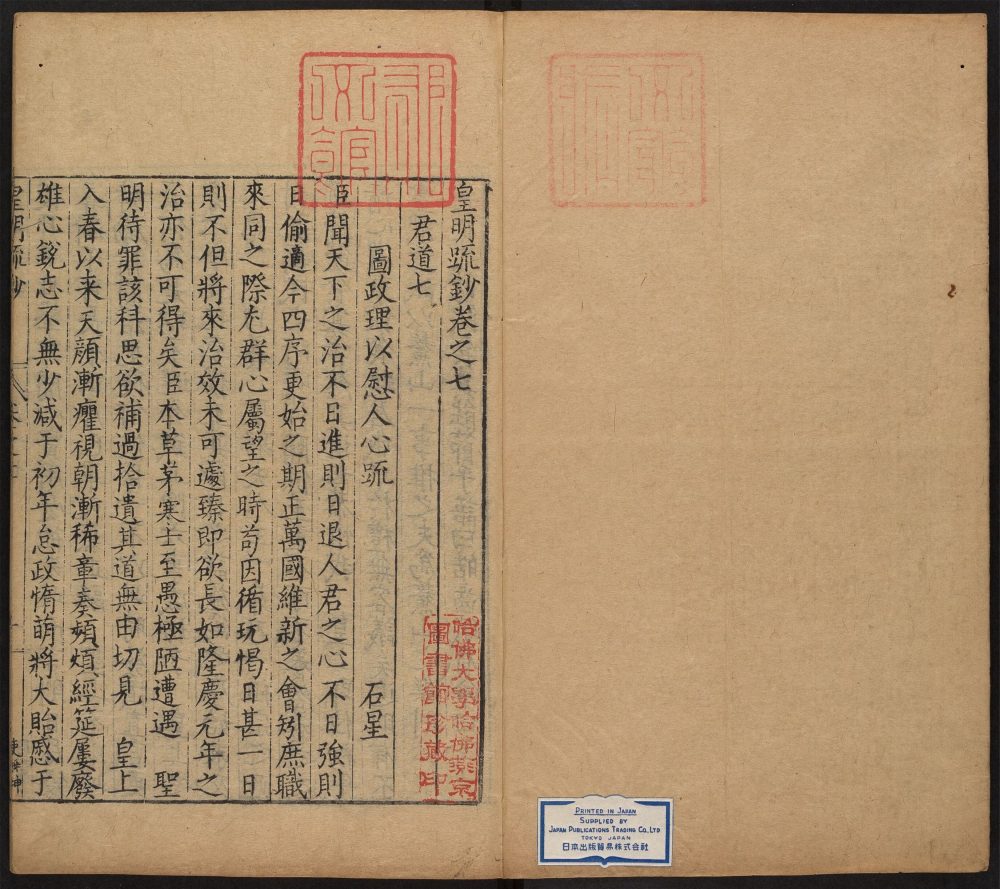 皇明疏鈔卷之七
君道七
圖政理以慰人心疏
石星
臣聞天下之治不日進則日退人君之心不日強則
日偷適今四序更始之期正萬國維新之會矧庶職
來同之際尤群心屬望之時茍因循玩愒日甚一日
則不但將來治效未可遽臻即欲長如隆慶元年之
治亦不可得矣臣本草茅寒士至愚極陋遭遇 聖
明待罪該科思欲補過拾遺其道無由切見 皇上
入春以来天顔漸癯視朝漸稀章奏頻煩經筵屢廢
雄心銳志不無少減于初年怠政惰萌將大貽慼于
皇明疏鈔
哈佛大學哈佛燕京
圖書館珍藏印
PRINTED IN JAPAN
SUPPLIED BY
JAPAN PUBLICATIONS TRADING CO., LTD
TOKYO JAPAN
日本出版貿易株式会社